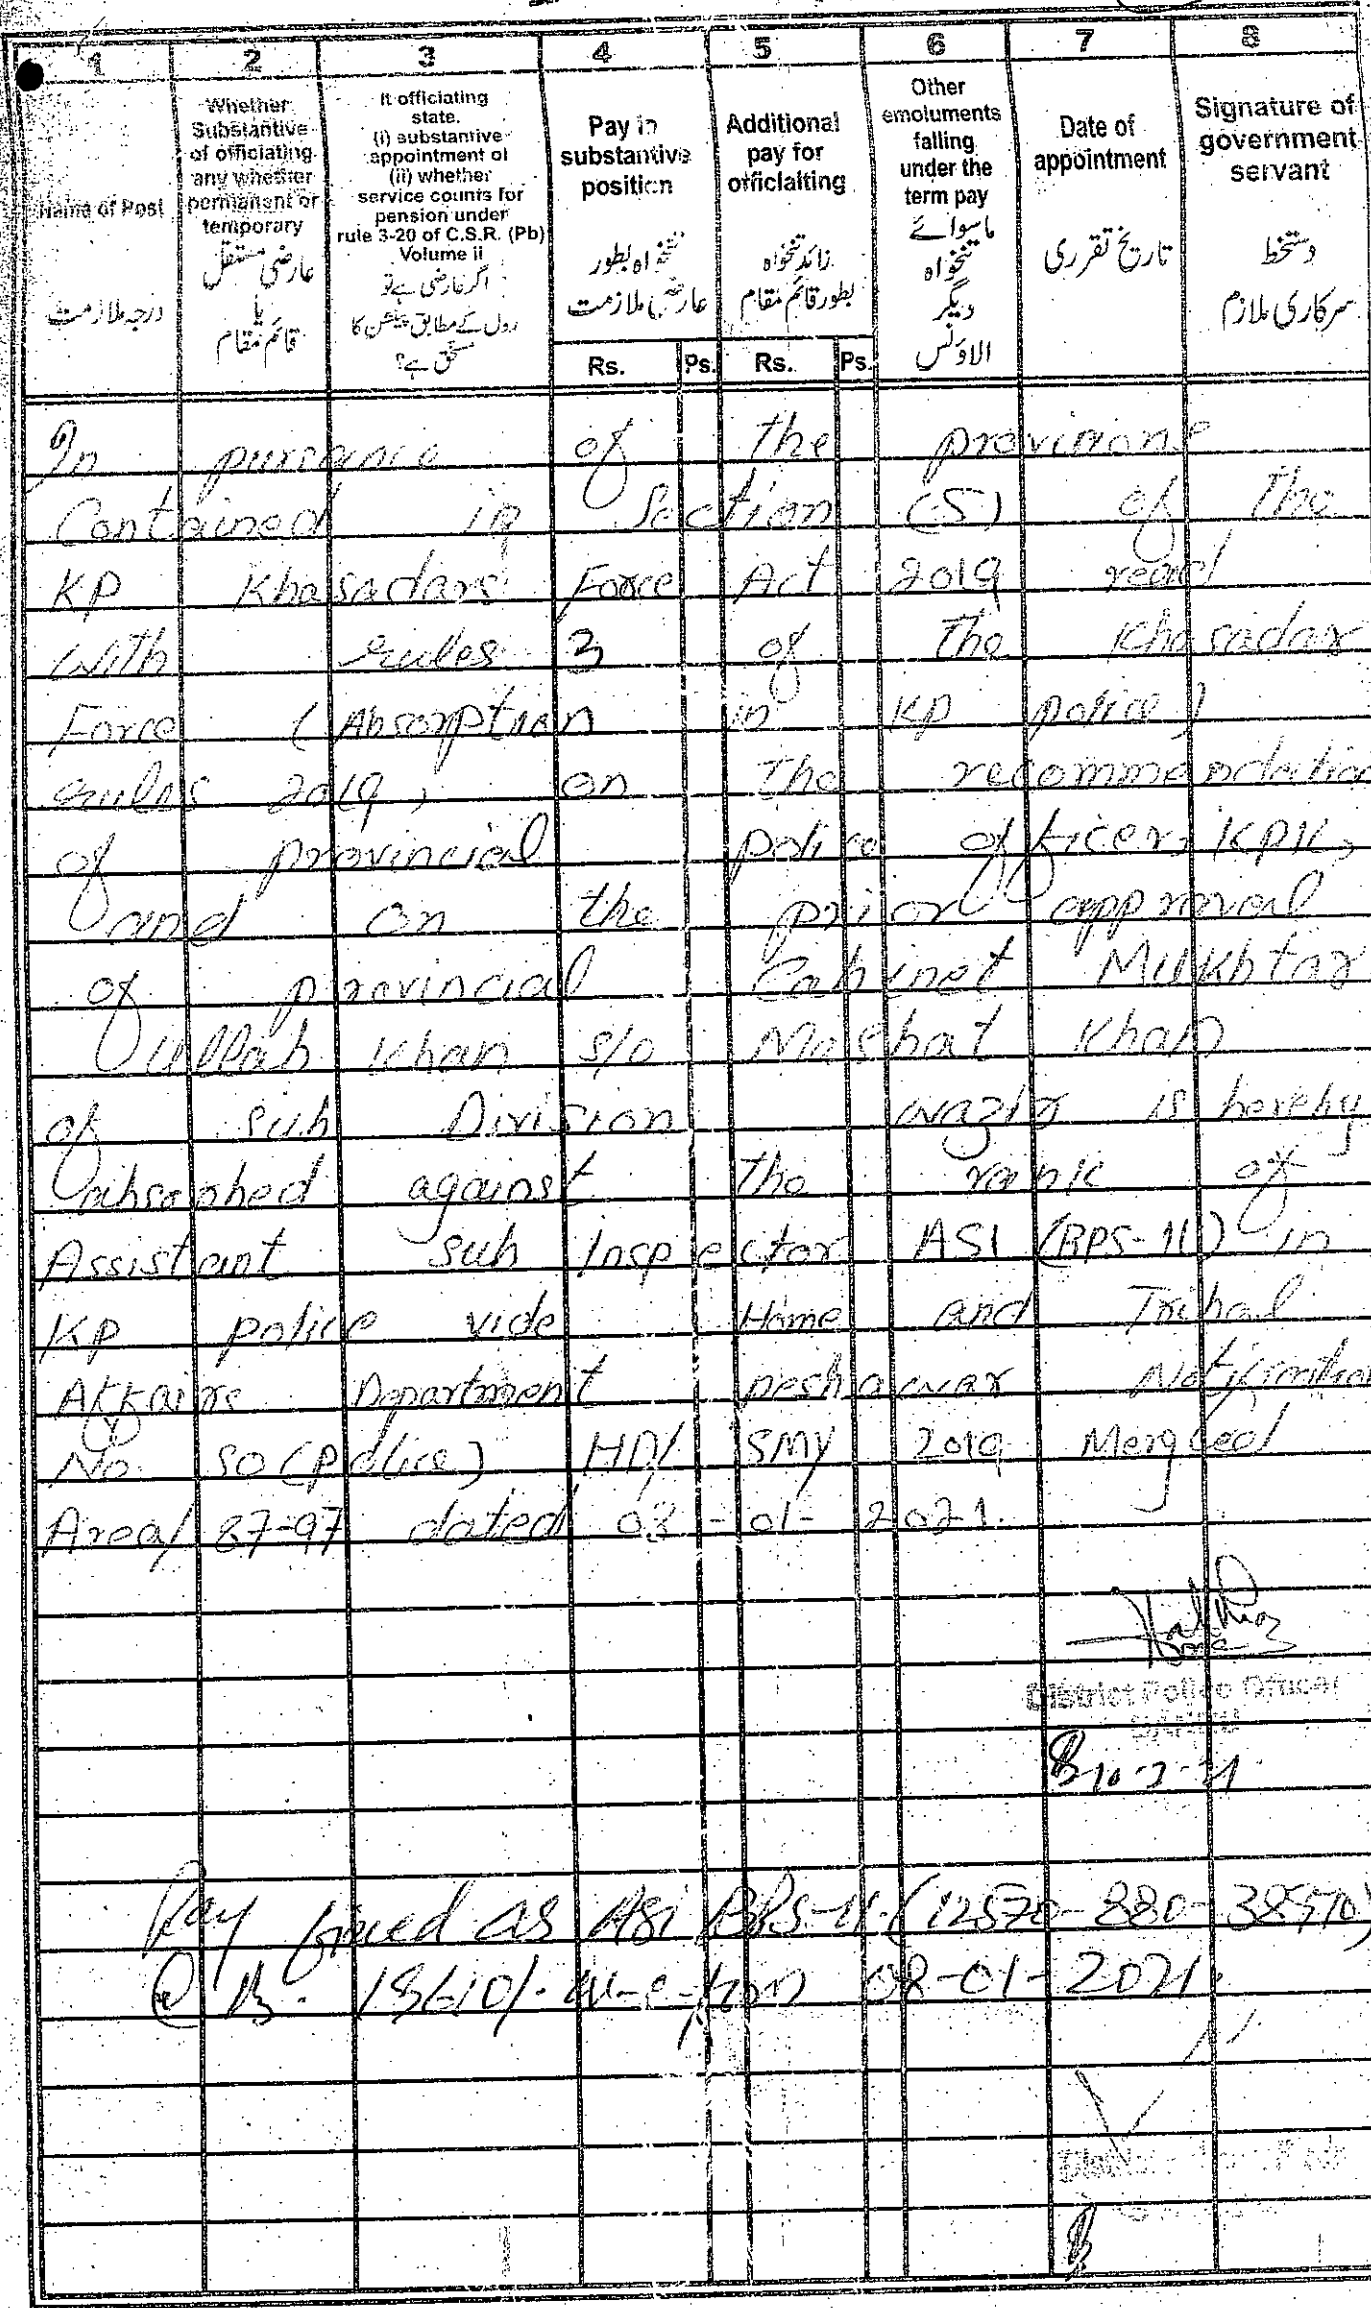 1 2 3 4 5 6 7 8
Name of Post
درجہ ملازمت
Whether
Substantive
of officiating
any whether
permanent or
temporary
عارضی مستقل
یا
قائم مقام
It officiating
state.
(i) substantive
appointment of
(ii) whether
service counts for
pension under
rule 3-20 of C.S.R. (Pb)
Volume ii
اگر عارضی ہے تو
رول کے مطابق پینشن کا
مستحق ہے؟
Pay in
substantive
position
تنخواہ بطور
عارضی ملازمت
Rs. Ps.
Additional
pay for
officialting
زائد تنخواہ
بطور قائم مقام
Rs. Ps.
Other
emoluments
falling
under the
term pay
ماسوائے
تنخواہ
دیگر
الاؤنس
Date of
appointment
تاریخ تقرری
Signature of
government
servant
دستخط
سرکاری ملازم
In pursuance of the provisions
Contained in Section (5) of the
KP Khasadars Force Act 2019 read
with rules 3 of the Khasadar
Force (Absorption in KP police)
rules 2019, on the recommendation
of provincial police officer, KPK,
and on the prior approval
of provincial Cabinet Mukhtar
ullah Khan s/o Mashat Khan
of sub Division wazir is hereby
absorbed against the rank of
Assistant sub Inspector ASI (BPS-11) in
KP police vide Home and Tribal
Affairs Department peshawar Notification
No. SO (Police) HD/ SMY 2019 Merged
Area/ 87-97 dated 08-01-2021.
District Police Officer
BANNU
10-2-21
Pay fixed as ASI BPS-11 (12570-880-38970)
@ Rs. 18610/. w-e-from 08-01-2021.